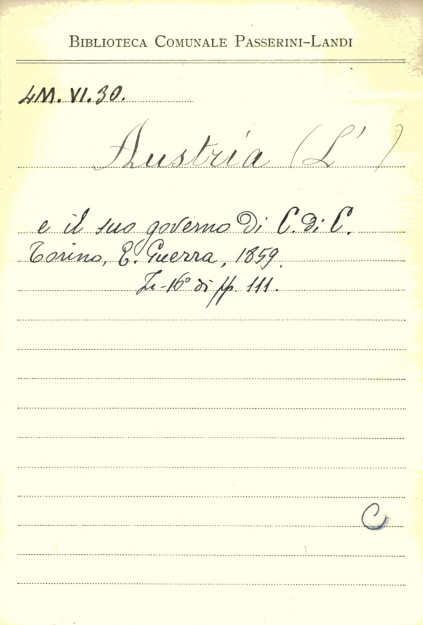 BIBLIOTECA COMUNALE PASSERINI-LANDI
4M. VI. 30.
Austria (L' )
e il suo governo di C. di C.
Torino, E. Guerra, 1859.
In-16° di pp. 111.
C